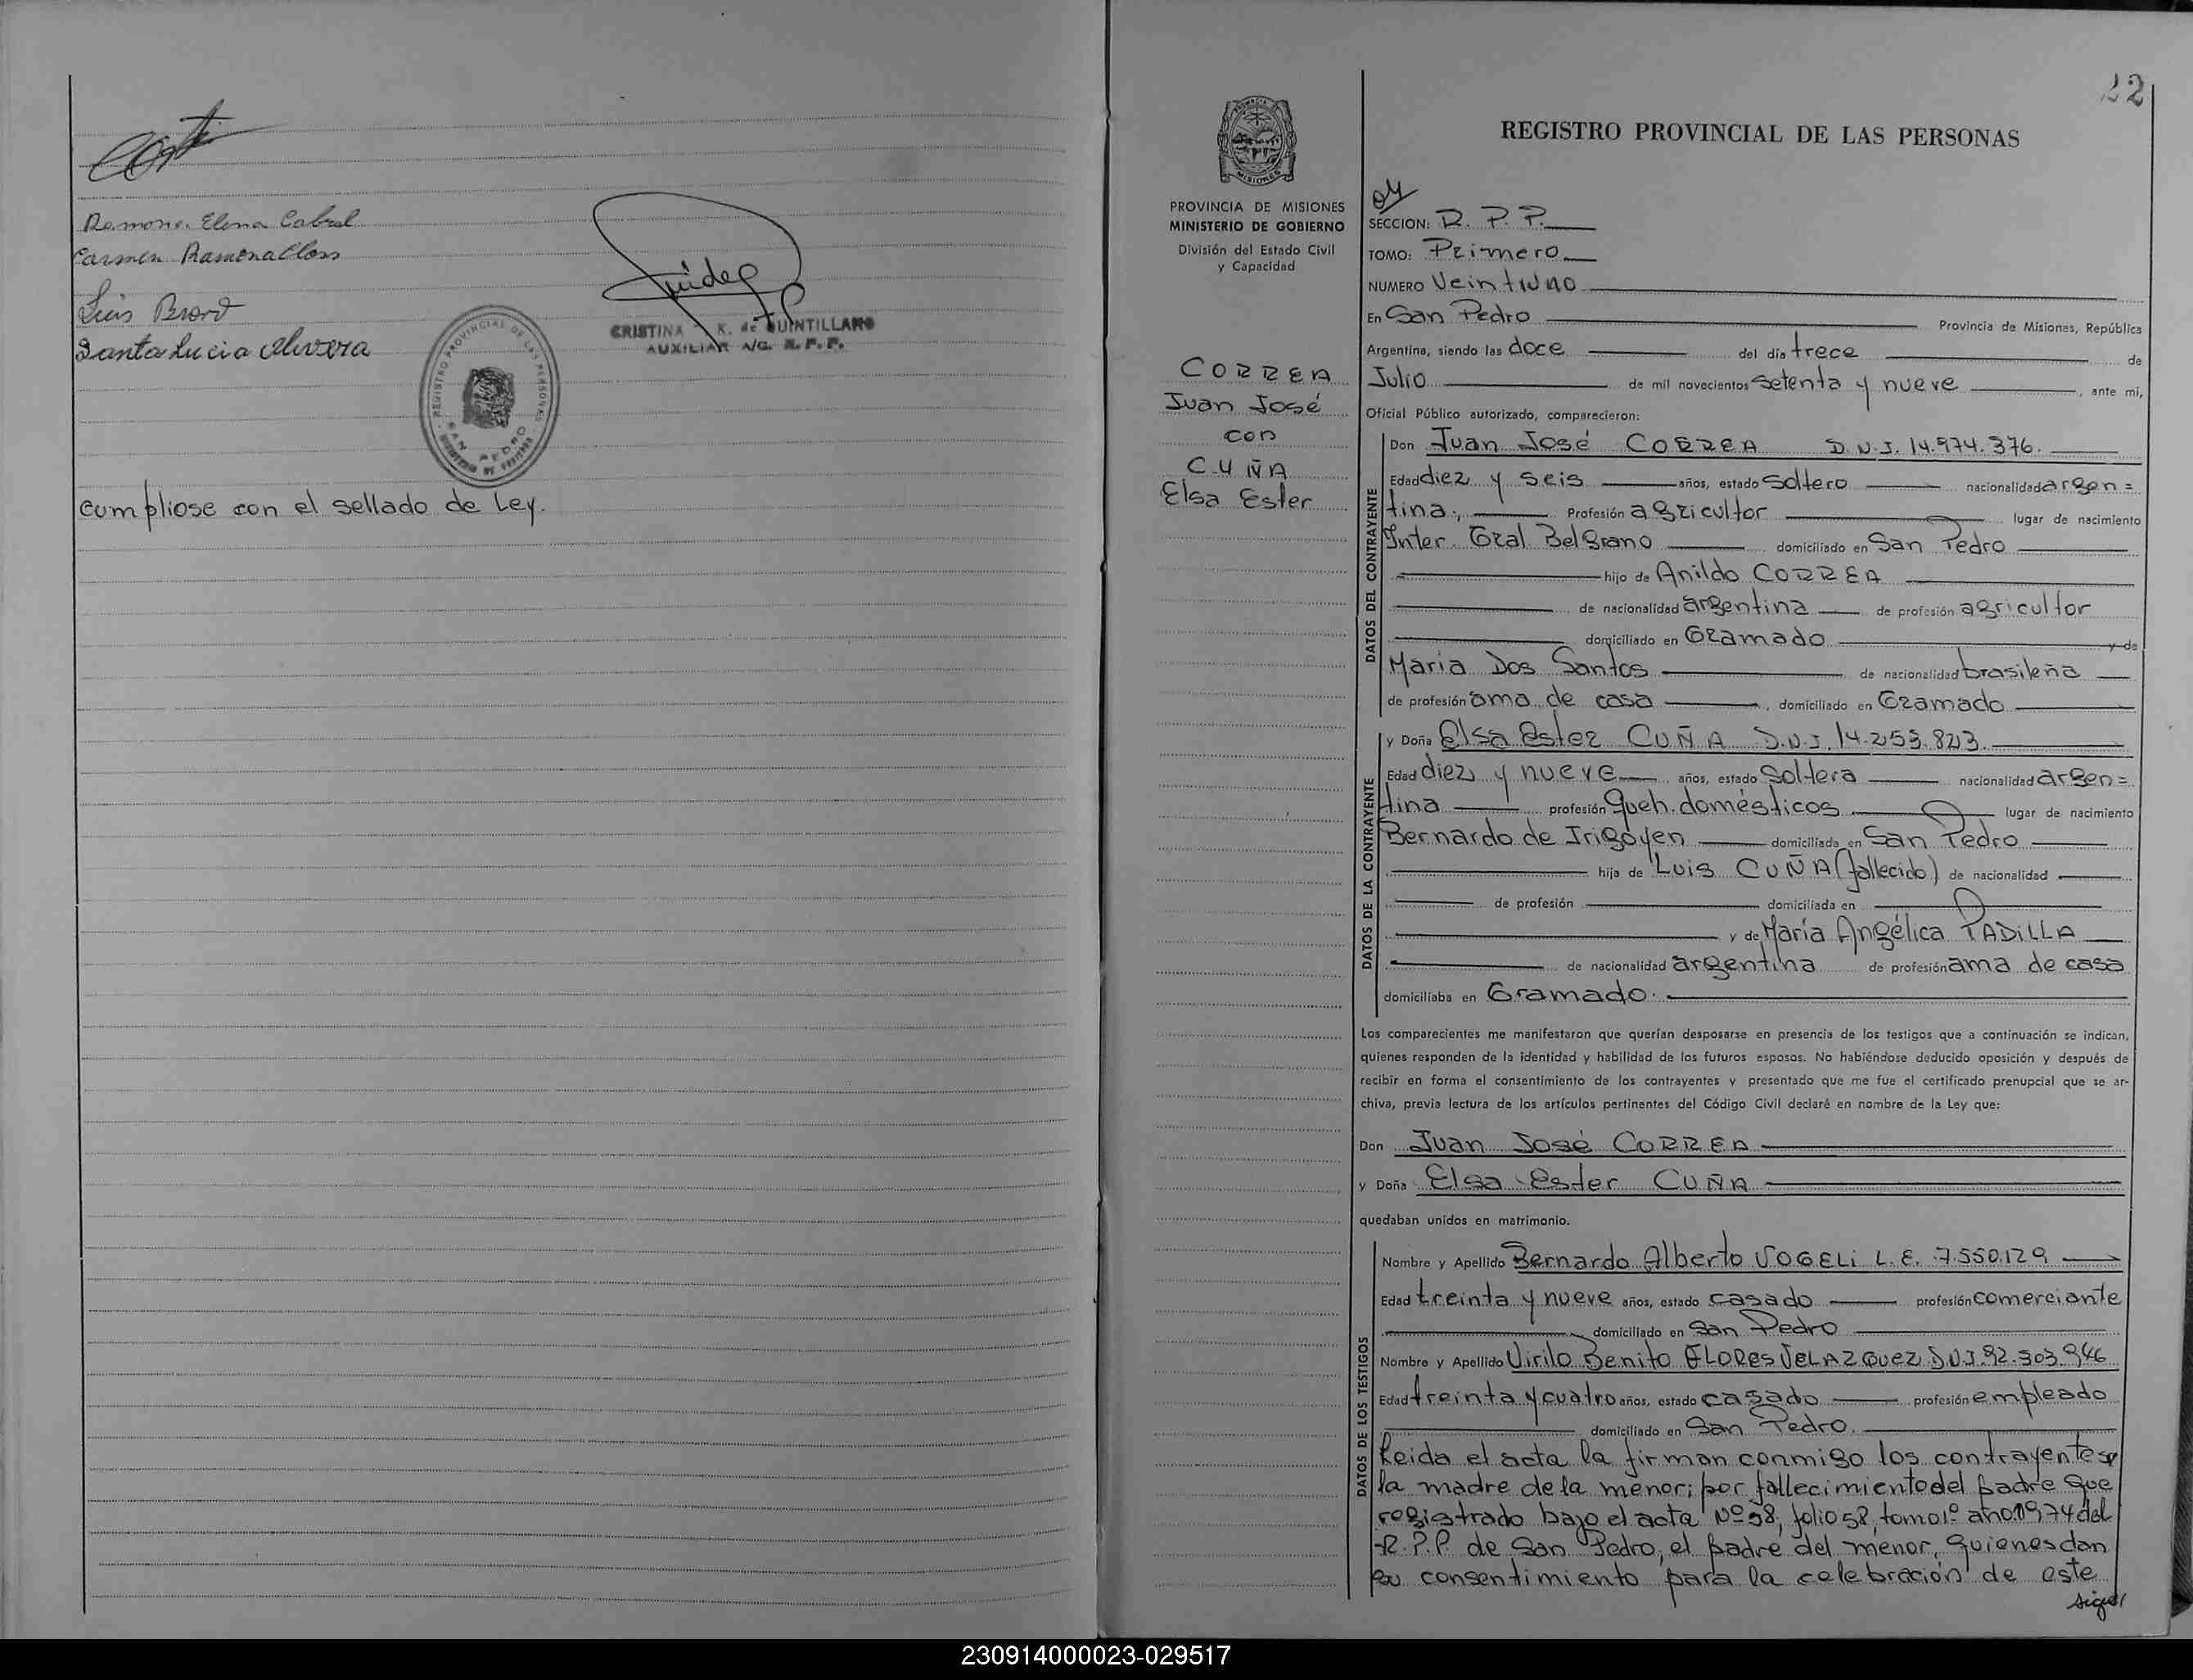 Ramona Elena Cabral
Carmen Ramona
Luis
Santa Lucia Olivera
CRISTINA K. de QUINTILLARO
AUXILIAR A/C. R. P. P.
REGISTRO PROVINCIAL DE LAS PERSONAS
SAN PEDRO
cumpliose con el sellado de Ley.
22
MISIONES
PROVINCIA DE MISIONES
MINISTERIO DE GOBIERNO
División del Estado Civil
y Capacidad
CORREA
Juan José
con
CUÑA
Elsa Ester
REGISTRO PROVINCIAL DE LAS PERSONAS
SECCION: R. P. P.
TOMO: Primero
NUMERO Veintiuno
En San Pedro Provincia de Misiones, República
Argentina, siendo las doce del día trece de
Julio de mil novecientos setenta y nueve, ante mi,
Oficial Público autorizado, comparecieron:
DATOS DEL CONTRAYENTE
Don Juan José CORREA D.N.I. 14.974.376.
Edad diez y seis años, estado soltero nacionalidad argen=
tina, Profesión agricultor lugar de nacimiento
Inter. Gral Belgrano domiciliado en San Pedro
hijo de Anildo CORREA
de nacionalidad argentina de profesión agricultor
domiciliado en Gramado y de
María Dos Santos de nacionalidad brasileña
de profesión ama de casa, domiciliado en Gramado
DATOS DE LA CONTRAYENTE
y Doña Elsa Ester CUÑA D.N.I. 14.253.823.
Edad diez y nueve años, estado Soltera nacionalidad argen=
tina profesión Queh. domésticos lugar de nacimiento
Bernardo de Irigoyen domiciliada en San Pedro
hija de Luis CUÑA (fallecido) de nacionalidad
de profesión domiciliada en
y de María Angélica PADILLA
de nacionalidad argentina de profesión ama de casa
domiciliaba en Gramado.
Los comparecientes me manifestaron que querían desposarse en presencia de los testigos que a continuación se indican,
quienes responden de la identidad y habilidad de los futuros esposos. No habiéndose deducido oposición y después de
recibir en forma el consentimiento de los contrayentes y presentado que me fue el certificado prenupcial que se ar-
chiva, previa lectura de los artículos pertinentes del Código Civil declaré en nombre de la Ley que:
Don Juan José CORREA
y Doña Elsa Ester CUÑA
quedaban unidos en matrimonio.
DATOS DE LOS TESTIGOS
Nombre y Apellido Bernardo Alberto VOGELi L.E. 7.550.129
Edad treinta y nueve años, estado casado profesión comerciante
domiciliado en San Pedro
Nombre y Apellido Virilo Benito FLORES VELAZQUEZ D.N.I. 92.303.946
Edad treinta y cuatro años, estado casado profesión empleado
domiciliado en San Pedro.
Leida el acta la firman conmigo los contrayentes y
la madre de la menor; por fallecimiento del padre que
registrado bajo el acta Nº 58, folio 58, tomo 1º año 1974 del
R.P.P. de San Pedro, el padre del menor, quienes dan
su consentimiento para la celebración de este
sigue/
230914000023-029517